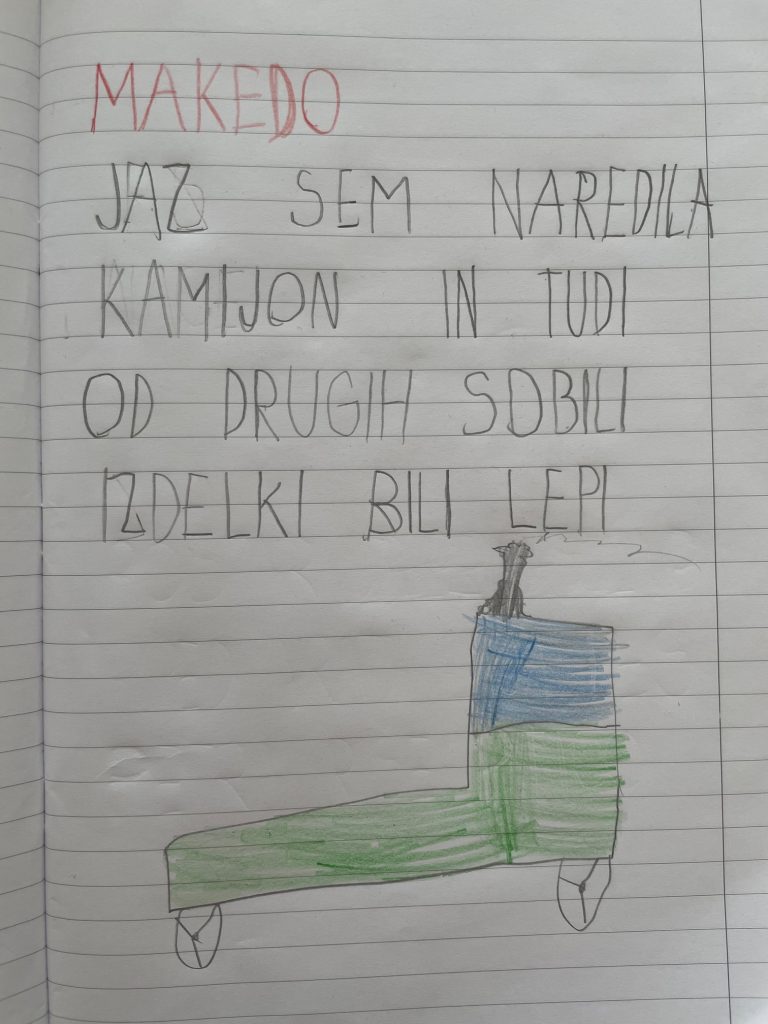 MAKEDO
JAZ SEM NAREDILA
KAMIJON IN TUDI
OD DRUGIH SOBILI
IZDELKI BILI LEPI